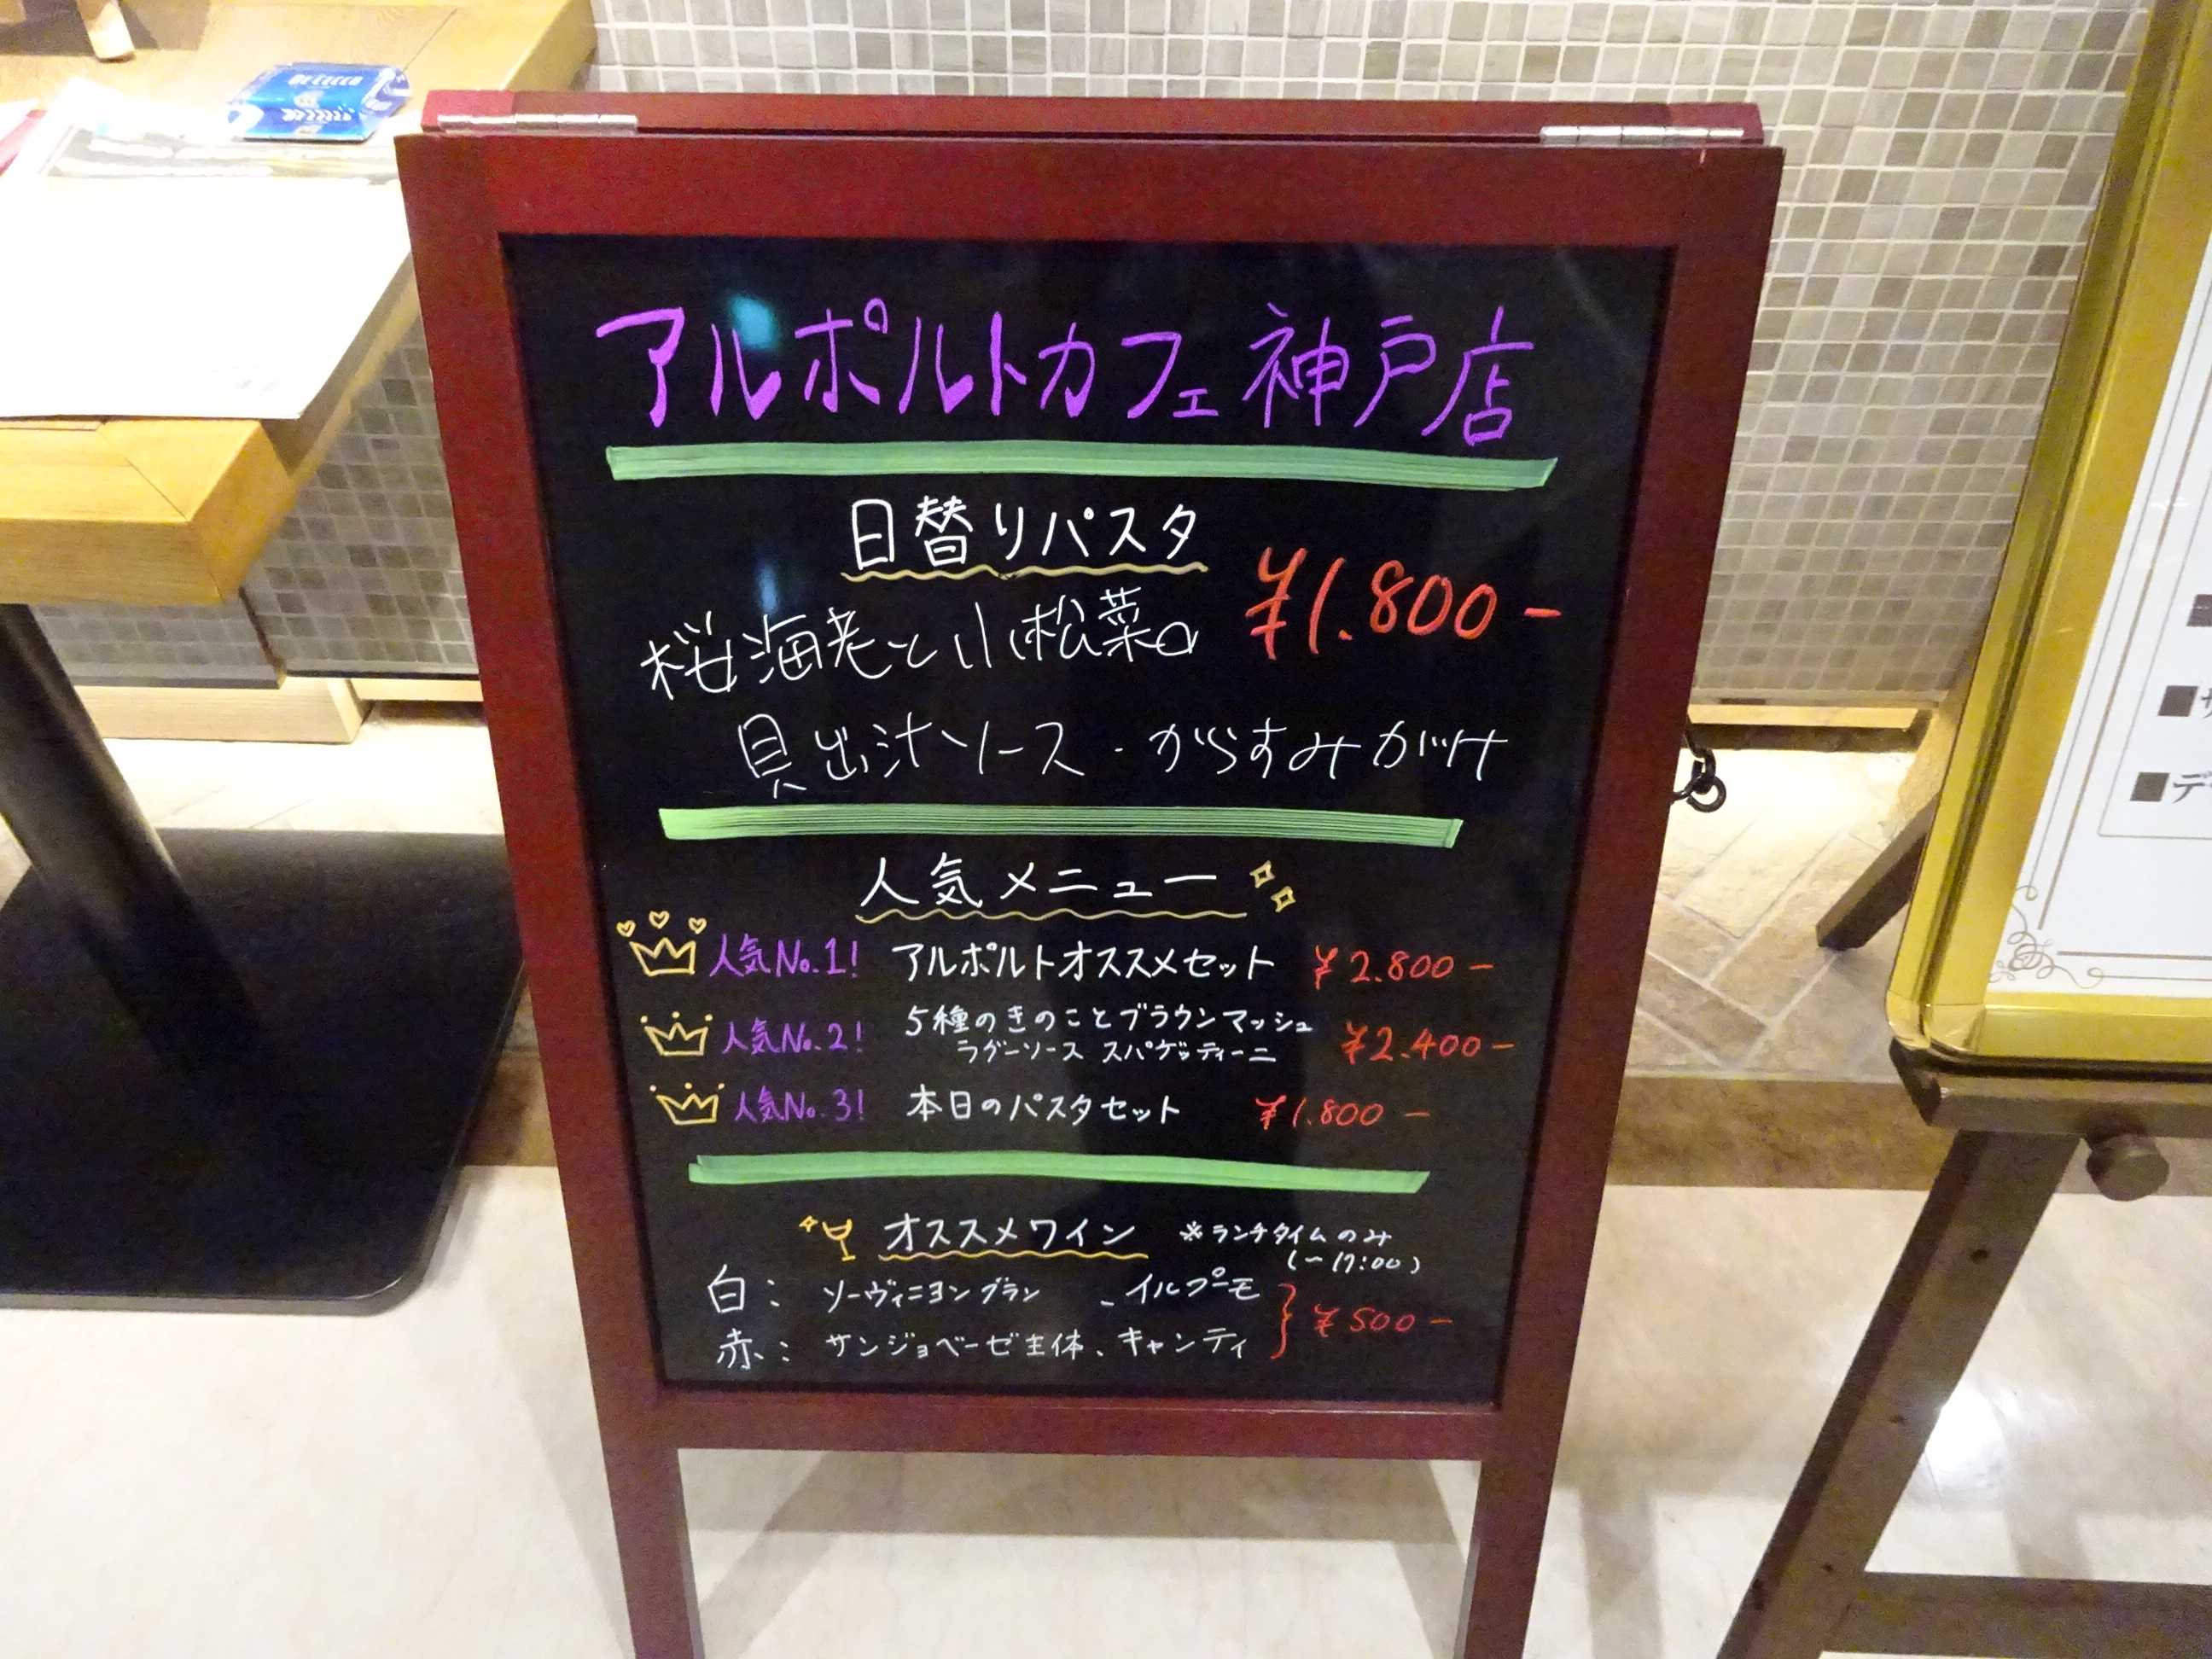 アルポルトカフェ 神戸店
日替りパスタ
¥1.800-
桜海老と小松菜の
貝出汁ソース・からすみがけ
人気メニュー
人気No.1! アルポルトオススメセット ¥2.800-
人気No.2! 5種のきのことブラウンマッシュ
ラグーソース スパゲッティーニ ¥2.400-
人気No.3! 本日のパスタセット ¥1.800-
オススメワイン ※ランチタイムのみ
(~17:00)
白: ソーヴィニヨンブラン 、イルプーモ
赤: サンジョベーゼ主体、キャンティ
¥500-